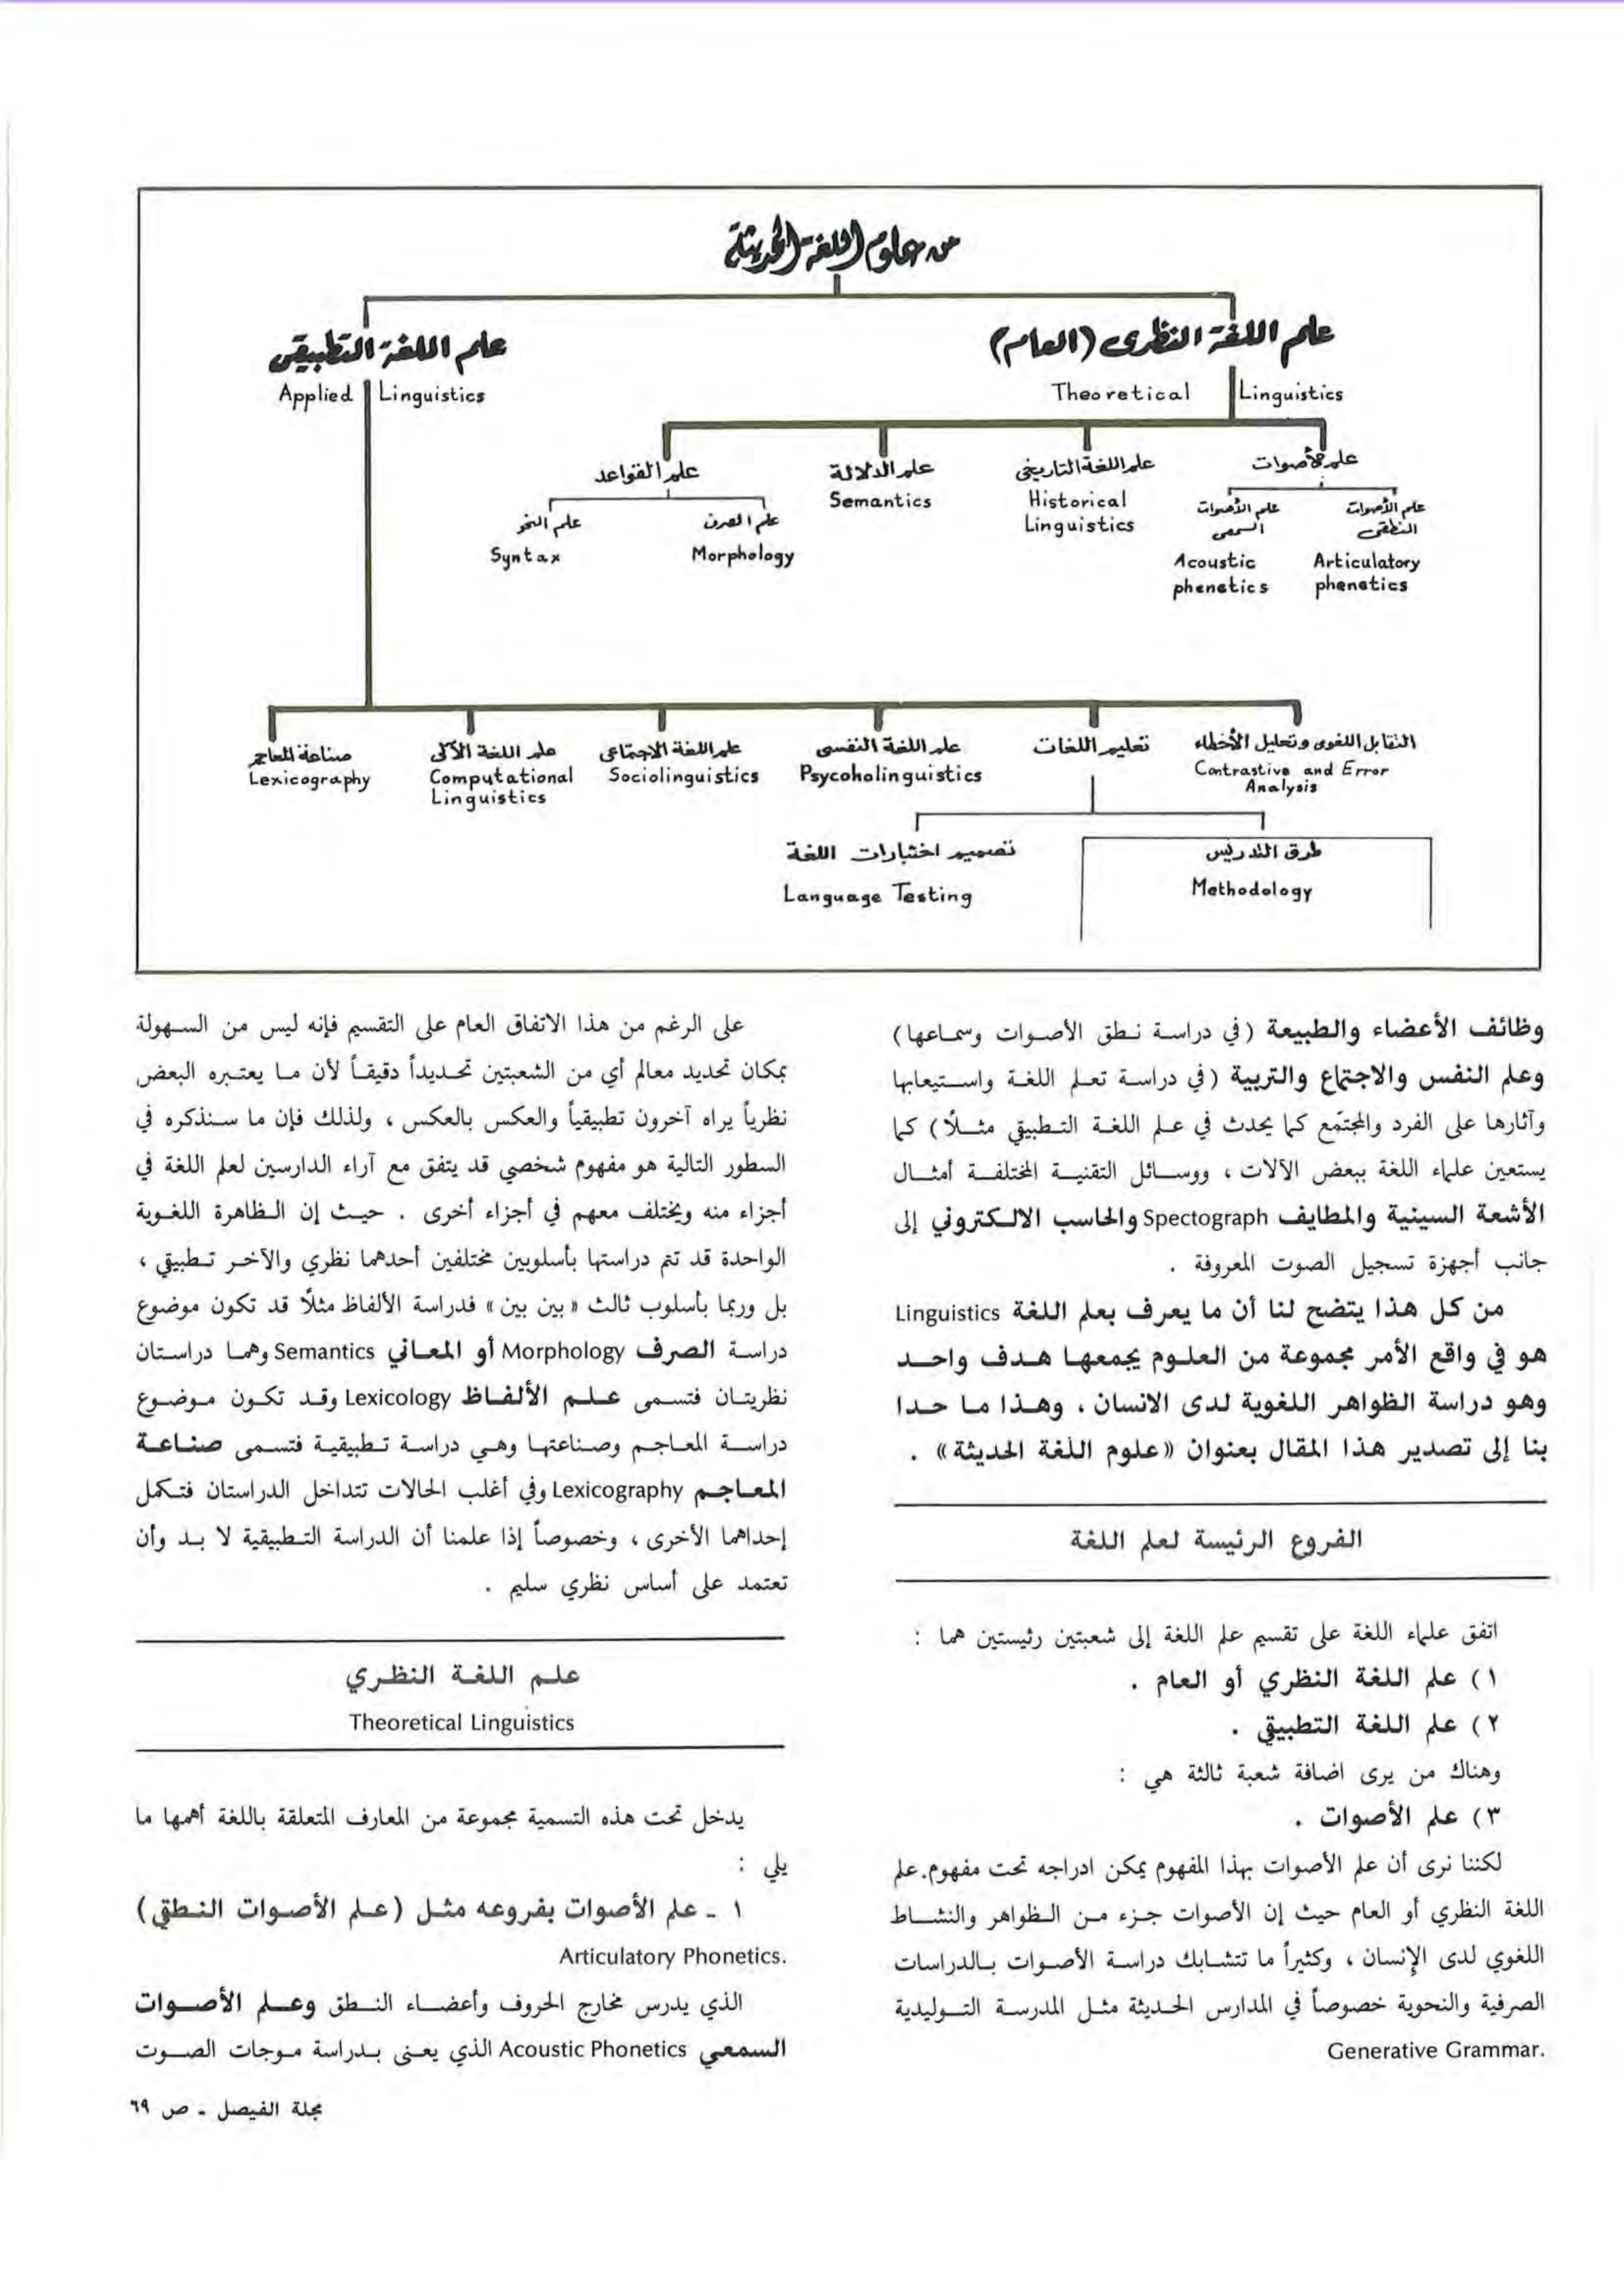 من علوم اللغة الحديثة
علم اللغة النظرى (العام)
Theoretical Linguistics
علم اللغة التطبيقى
Applied Linguistics
علم الأصوات
علم اللغة التاريخى
Historical
Linguistics
علم الدلالة
Semantics
علم القواعد
علم الأصوات
النطقى
Articulatory
phenetics
علم الأصوات
السمعى
Acoustic
phenetics
علم الصرف
Morphology
علم النحو
Syntax
التقابل اللغوى وتحليل الأخطاء
Contrastive and Error
Analysis
تعليم اللغات
علم اللغة النفسى
Psycoholinguistics
علم اللغة الاجتماعى
Sociolinguistics
علم اللغة الآلى
Computational
Linguistics
صناعة المعاجم
Lexicography
طرق التدريس
Methodology
تصميم اختبارات اللغة
Language Testing
وظائف الأعضاء والطبيعة (في دراسة نطق الأصوات وسماعها)
وعلم النفس والاجتماع والتربية (في دراسة تعلم اللغة واستيعابها
وآثارها على الفرد والمجتمع كما يحدث في علم اللغة التطبيقي مثلاً) كما
يستعين علماء اللغة ببعض الآلات ، ووسائل التقنية المختلفة أمثال
الأشعة السينية والمطايف Spectograph والحاسب الالكتروني إلى
جانب أجهزة تسجيل الصوت المعروفة .
من كل هذا يتضح لنا أن ما يعرف بعلم اللغة Linguistics
هو في واقع الأمر مجموعة من العلوم يجمعها هدف واحد
وهو دراسة الظواهر اللغوية لدى الانسان ، وهذا ما حدا
بنا إلى تصدير هذا المقال بعنوان «علوم اللغة الحديثة» .
الفروع الرئيسة لعلم اللغة
اتفق علماء اللغة على تقسيم علم اللغة إلى شعبتين رئيستين هما :
١) علم اللغة النظري أو العام .
٢) علم اللغة التطبيقي .
وهناك من يرى اضافة شعبة ثالثة هي :
٣) علم الأصوات .
لكننا نرى أن علم الأصوات بهذا المفهوم يمكن ادراجه تحت مفهوم.علم
اللغة النظري أو العام حيث إن الأصوات جزء من الظواهر والنشاط
اللغوي لدى الإنسان ، وكثيراً ما تتشابك دراسة الأصوات بالدراسات
الصرفية والنحوية خصوصاً في المدارس الحديثة مثل المدرسة التوليدية
Generative Grammar.
على الرغم من هذا الاتفاق العام على التقسيم فإنه ليس من السهولة
بمكان تحديد معالم أي من الشعبتين تحديداً دقيقاً لأن ما يعتبره البعض
نظرياً يراه آخرون تطبيقياً والعكس بالعكس ، ولذلك فإن ما سنذكره في
السطور التالية هو مفهوم شخصي قد يتفق مع آراء الدارسين لعلم اللغة في
أجزاء منه ويختلف معهم في أجزاء أخرى . حيث إن الظاهرة اللغوية
الواحدة قد تتم دراستها بأسلوبين مختلفين أحدهما نظري والآخر تطبيقي ،
بل وربما بأسلوب ثالث «بين بين» فدراسة الألفاظ مثلاً قد تكون موضوع
دراسة الصرف Morphology أو المعاني Semantics وهما دراستان
نظريتان فتسمى علم الألفاظ Lexicology وقد تكون موضوع
دراسة المعاجم وصناعتها وهي دراسة تطبيقية فتسمى صناعة
المعاجم Lexicography وفي أغلب الحالات تتداخل الدراستان فتكمل
إحداهما الأخرى ، وخصوصاً إذا علمنا أن الدراسة التطبيقية لا بد وأن
تعتمد على أساس نظري سليم .
علم اللغة النظري
Theoretical Linguistics
يدخل تحت هذه التسمية مجموعة من المعارف المتعلقة باللغة أهمها ما
يلي :
١ - علم الأصوات بفروعه مثل (علم الأصوات النطقي)
Articulatory Phonetics.
الذي يدرس مخارج الحروف وأعضاء النطق وعلم الأصوات
السمعي Acoustic Phonetics الذي يعنى بدراسة موجات الصوت
مجلة الفيصل - ص ٦٩